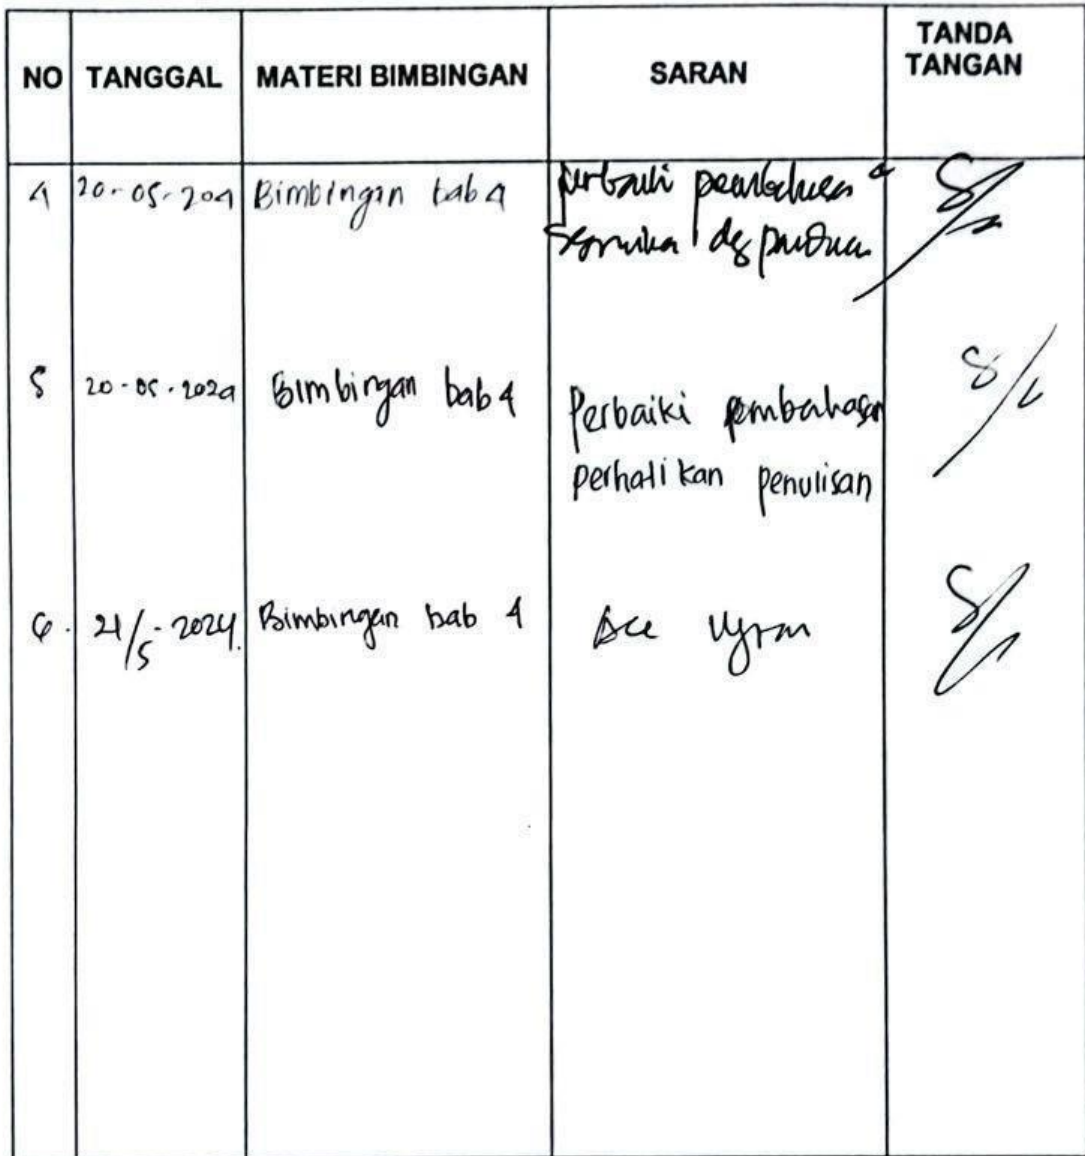 NO TANGGAL MATERI BIMBINGAN SARAN TANDA TANGAN
4 20-05-204 Bimbingan bab 4 perbaiki
sesuaikan dg panduan
5 20-05-2024 Bimbingan bab 4 Perbaiki pembahasan
perhatikan penulisan
6. 21/5-2024. Bimbingan bab 4 Acc Ujian